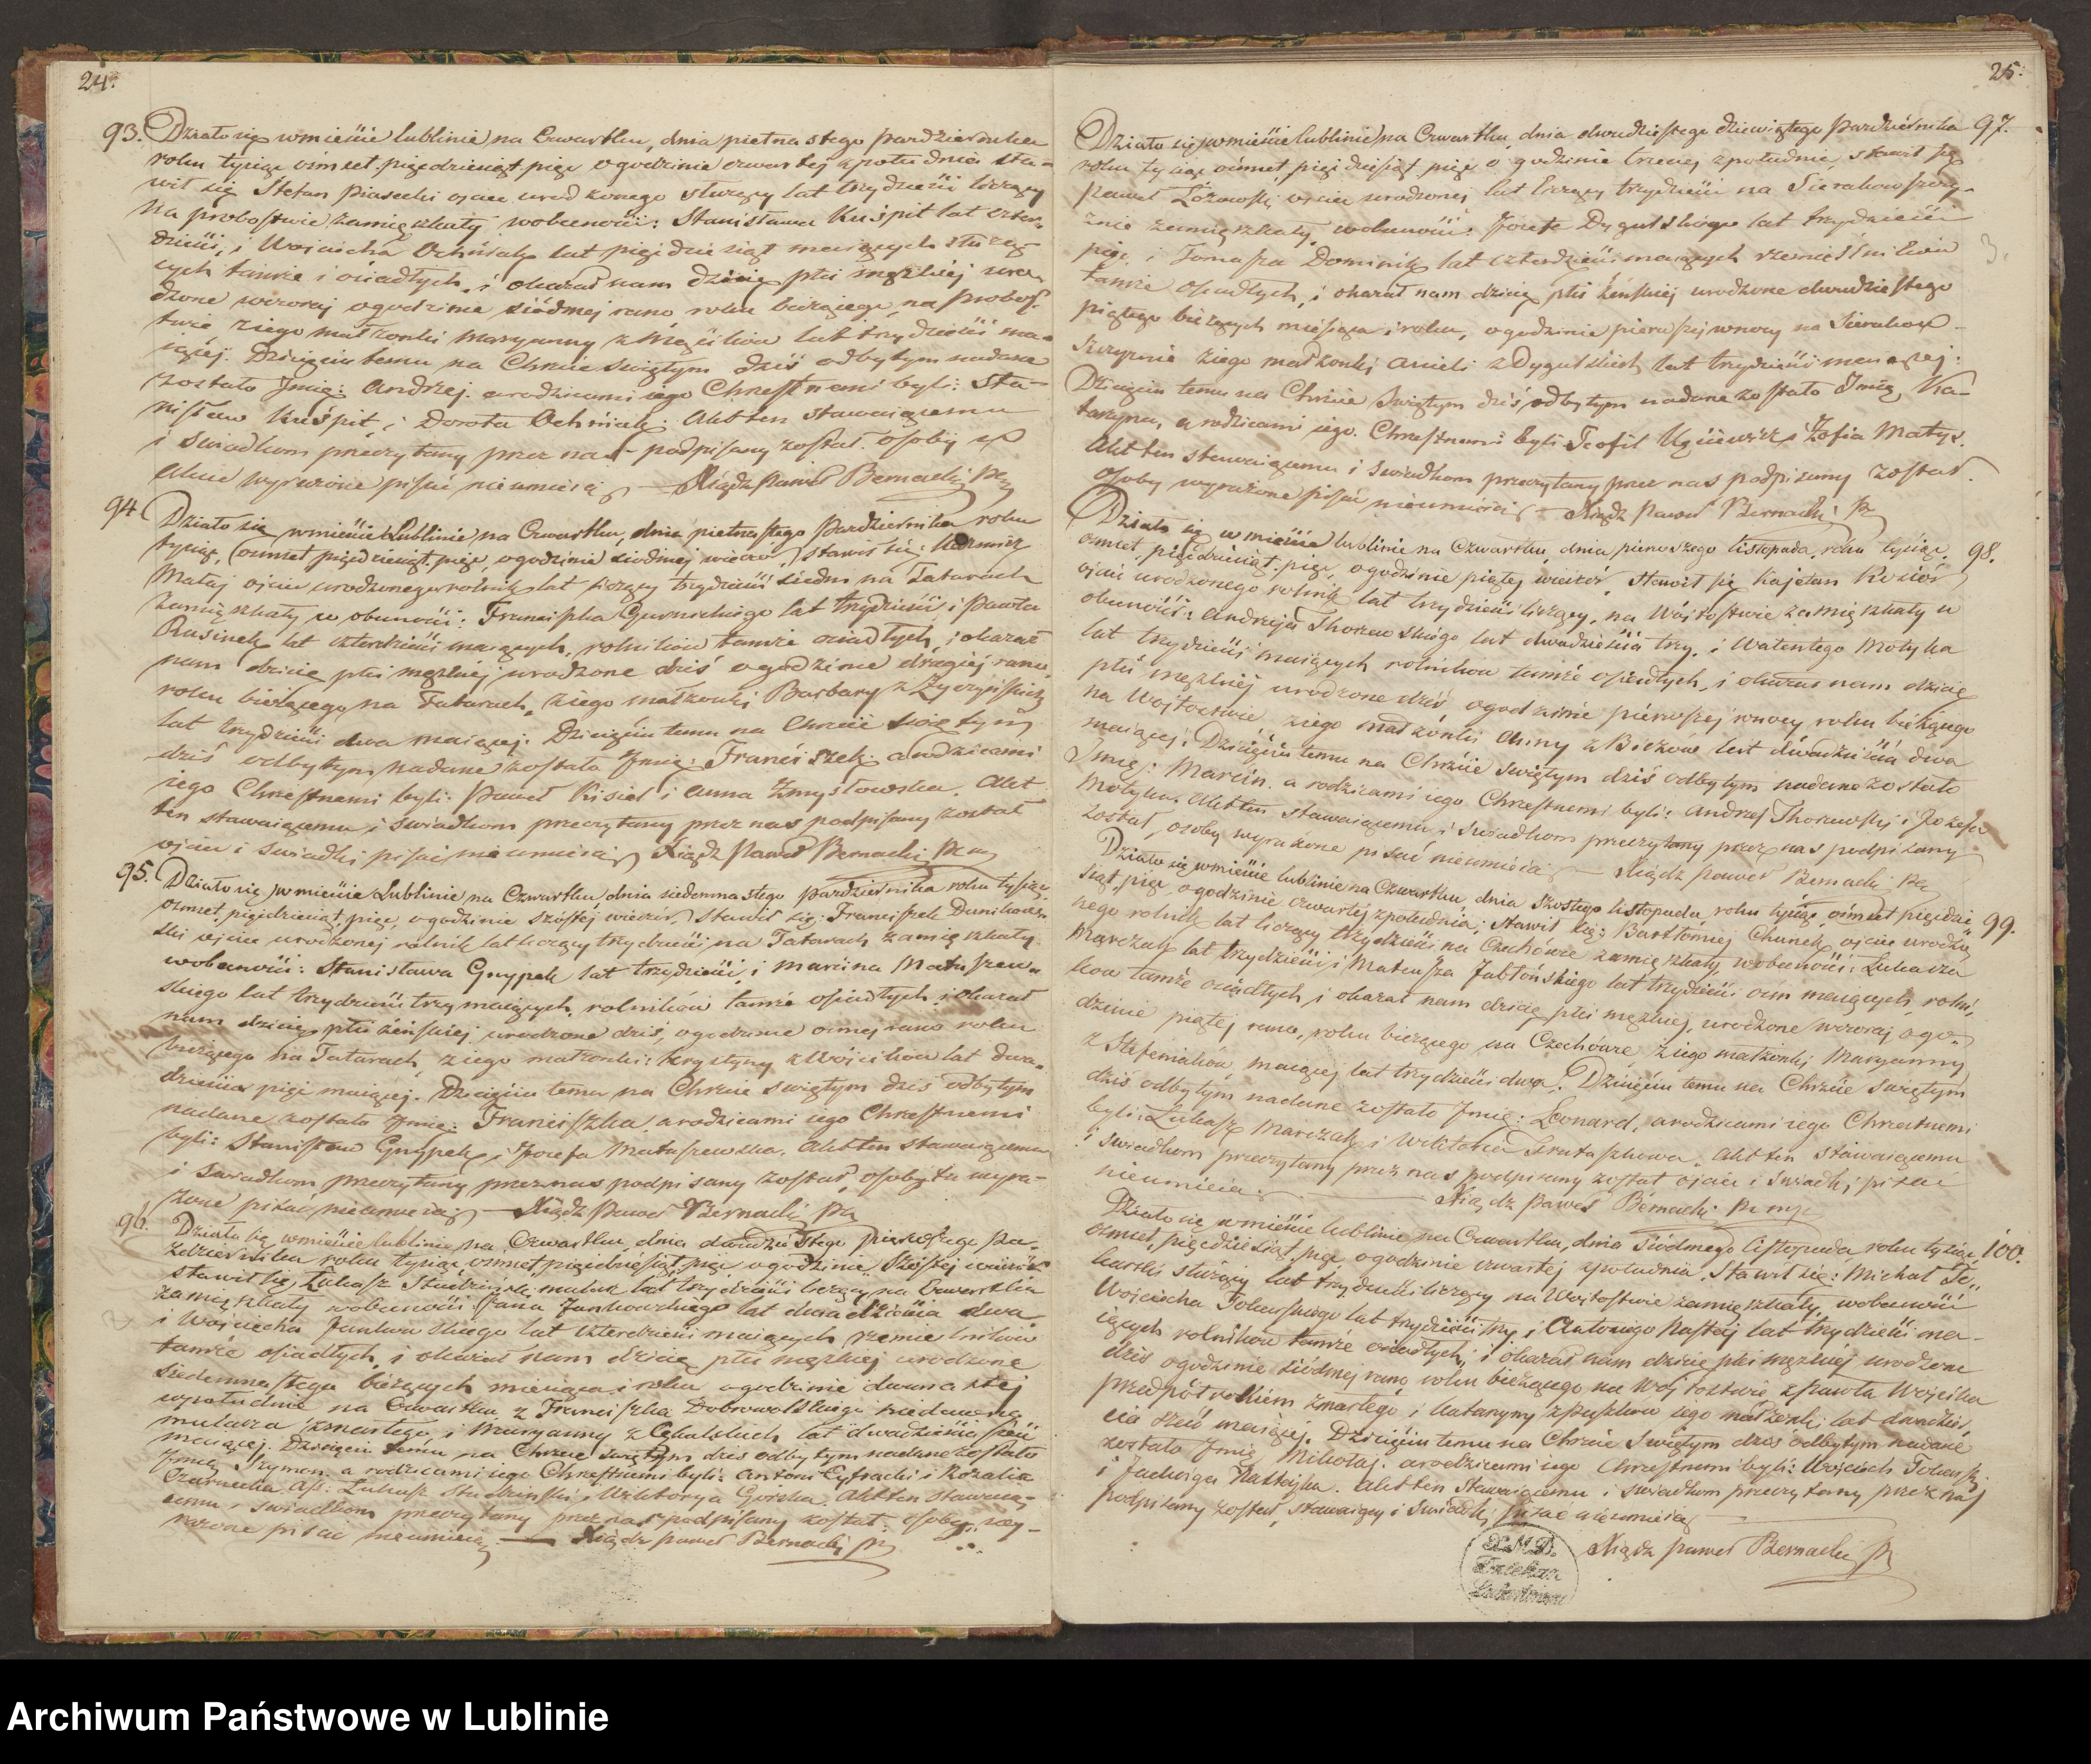 24.
93. Działo się w mieście Lublinie na Czwartku, dnia piętnastego Października
roku tysiąc ośmset pięćdziesiąt pięć o godzinie czwartej z południa sta-
wił się Stefan Piasecki ojciec urodzonego służący lat trzydzieści liczący
na probostwie zamięszkały w obecności: Stanisława Kuśpit lat czter-
dzieści, i Wojciecha Ochniak lat pięćdziesiąt maiących służą-
cych tamże i osiadłych, i okazał nam dziecię płci męzkiéj uro-
dzone wczoraj o godzinie siódmej rano roku bieżącego na probos-
twie z iego małżonki Maryanny z lat trzydzieści ma-
iącéj. Dziecięciu temu na Chrzcie świętym dziś odbytym nadane
zostało Imię: Andrzej. a rodzicami iego Chrzestnemi byli: Sta-
nisław Kuśpit, i Dorota Ochniak. Akt ten stawaiącemu
i świadkom przeczytany przez nas podpisany został. Osoby w
akcie wyrażone pisać nieumieią — Xiądz Paweł Bernacki
94. Działo się w mieście Lublinie na Czwartku, dnia piętnastego Października roku
tysiąc ośmset pięćdziesiąt pięć, o godzinie siódmej wieczór, stawił się: Kazimierz
Mataj ojciec urodzonego rolnik lat liczący trzydzieści siedm na Tatarach
zamięszkały w obecności: Franciszka lat trzydzieści i Pawła
Rusinek lat czterdzieści maiących, rolników tamże osiadłych, i okazał
nam dziecię płci męzkiéj urodzone dziś o godzinie drugiej rano,
roku bieżącego na Tatarach, z iego małżonki Barbary z
lat trzydzieści dwa maiącej. Dziecięciu temu na Chrzcie świętym
dziś odbytym nadane zostało Imię: Franciszek. a rodzicami
iego Chrzestnemi byli: Paweł Kisiel i Anna Zmysłowska. Akt
ten stawaiącemu i świadkom przeczytany przez nas podpisany został
ojciec i świadki pisać nieumieią Xiądz Paweł Bernacki
95. Działo się w mieście Lublinie na Czwartku, dnia siedemnastego Października roku tysiąc
ośmset pięćdziesiąt pięć, o godzinie szóstej wieczór, stawił się: Franciszek Danikow-
ski ojciec urodzonej rolnik lat liczący trzydzieści na Tatarach zamięszkały
w obecności: Stanisława Gnypek lat trzydzieści i Marcina Matuszew-
skiego lat trzydzieści trzy maiących, rolników tamże osiadłych i okazał
nam dziecię płci żeńskiej urodzone dziś, o godzinie ósmej rano roku
bieżącego na Tatarach z iego małżonki: Krystyny z Wójcików lat dwa-
dzieścia pięć maiącej. Dziecięciu temu na Chrzcie świętym dziś odbytym
nadane zostało Imię: Franciszka a rodzicami iego Chrzestnemi
byli: Stanisław Gnypek, i Józefa Matuszewska. Akt ten stawaiącemu
i świadkom przeczytany przez nas podpisany został, osoby tu wyra-
żone pisać nieumieią — Xiądz Paweł Bernacki
96. Działo się w mieście Lublinie na Czwartku, dnia dwudziestego pierwszego Pa-
ździernika roku tysiąc ośmset pięćdziesiąt pięć o godzinie szóstej wieczór
stawił się Łukasz Studziński mularz lat trzydzieści liczący na Czwartku
zamięszkały w obecności Jana Jankowskiego lat dwadzieścia dwa
i Wojciecha Jankowskiego lat czterdzieści maiących rzemieślników
tamże osiadłych, i okazał nam dziecię płci męzkiej urodzone
siedemnastego bieżących miesiąca i roku o godzinie dwunastej
w południe na Czwartku z Franciszka Dobrowolskiego niedawno
mularza zmarłego, i Maryanny z lat dwadzieścia sześć
maiącej. Dziecięciu temu na Chrzcie świętym dziś odbytym nadane zostało
Imię Szymon. a rodzicami iego Chrzestnemi byli: Antoni i Rozalia
Czarnecka. Łukasz Studziński i Wiktorya Górska. Akt ten stawaią-
cemu i świadkom przeczytany przez nas podpisany został. osoby wy-
rażone pisać nieumieią — Xiądz Paweł Bernacki
25.
Działo się w mieście Lublinie na Czwartku, dnia dwudziestego dziewiątego Października 97.
roku tysiąc ośmset pięćdziesiąt pięć o godzinie trzeciej z południa, stawił się
Paweł Łozowski ojciec urodzonej lat liczący trzydzieści na Sierakowszczy-
znie zamięszkały w obecności: Józefa Dygulskiego lat trzydzieści
pięć, i Tomasza Dominik lat czterdzieści maiących rzemieślników
tamże osiadłych, i okazał nam dziecię płci żeńskiej urodzone dwudziestego
piątego bieżących miesiąca i roku, o godzinie pierwszej w nocy na Sierakow-
szczyznie z iego małżonki Anieli z Dygulskich lat trzydzieści maiącej.
Dziecięciu temu na Chrzcie świętym dziś odbytym nadane zostało Imię Ka-
tarzyna, a rodzicami iego Chrzestnemi byli Teofil i Zofia Matys.
Akt ten stawaiącemu i świadkom przeczytany przez nas podpisany został.
Osoby wyrażone pisać nieumieią — Xiądz Paweł Bernacki
Działo się w mieście Lublinie na Czwartku, dnia pierwszego listopada, roku tysiąc 98.
ośmset pięćdziesiąt pięć, o godzinie piątej wieczór, stawił się Kajetan Kozioł
ojciec urodzonego rolnik lat trzydzieści liczący, na Wójtostwie zamięszkały w
obecności: Andrzeja Skorowskiego lat dwadzieścia trzy, i Walentego Motyka
lat trzydzieści maiących rolników tamże osiadłych, i okazał nam dziecię
płci męzkiej urodzone dziś o godzinie pierwszej w nocy roku bieżącego
na Wójtostwie z iego małżonki Anny z lat dwadzieścia dwa
maiącej. Dziecięciu temu na Chrzcie świętym dziś odbytym nadane zostało
Imię: Marcin. a rodzicami iego Chrzestnemi byli: Andrzej Skorowski i Józefa
Motyka. Akt ten stawaiącemu i świadkom przeczytany przez nas podpisany
został, osoby wyrażone pisać nieumieią — Xiądz Paweł Bernacki
Działo się w mieście Lublinie na Czwartku, dnia szóstego listopada, roku tysiąc ośmset pięćdzie- 99.
siąt pięć o godzinie czwartej z południa, stawił się: Bartłomiej Chunek ojciec urodzo-
nego rolnik lat liczący trzydzieści na Czechówce zamięszkały w obecności: Łukasza
Marczak lat trzydzieści i Mateusza Jabłońskiego lat trzydzieści ośm maiących, rolni-
ków tamże osiadłych, i okazał nam dziecię płci męzkiej, urodzone wczoraj o go-
dzinie piątej rano, roku bieżącego na Czechówce z iego małżonki Maryanny
z Stefaniaków, maiącej lat trzydzieści dwa. Dziecięciu temu na Chrzcie świętym
dziś odbytym nadane zostało Imię: Leonard, a rodzicami iego Chrzestnemi
byli: Łukasz Marczak i Wiktoria. Akt ten stawaiącemu
i świadkom przeczytany przez nas podpisany został ojciec i świadki pisać
nieumieią. — Xiądz Paweł Bernacki
Działo się w mieście Lublinie na Czwartku, dnia siódmego listopada roku tysiąc 100.
ośmset pięćdziesiąt pięć, o godzinie czwartej z południa, stawił się: Michał Te-
służący lat trzydzieści liczący na Wójtostwie zamięszkały, w obecności
Wojciecha Tokarskiego lat trzydzieści trzy i Antoniego Nastaj lat trzydzieści ma-
iących rolników tamże osiadłych, i okazał nam dziecię płci męzkiej urodzone
dziś o godzinie siódmej rano roku bieżącego na Wójtostwie z Pawła Wójcika
przed pół rokiem zmarłego i Katarzyny z iego małżonki lat dwadzie-
ścia sześć maiącej. Dziecięciu temu na Chrzcie świętym dziś odbytym nadane
zostało Imię Mikołaj. a rodzicami iego Chrzestnemi byli: Wojciech Tokarski
i Jadwiga. Akt ten stawaiącemu i świadkom przeczytany przez nas
podpisany został, stawaiący i świadki pisać nieumieią
Xiądz Paweł Bernacki
Archiwum Państwowe w Lublinie